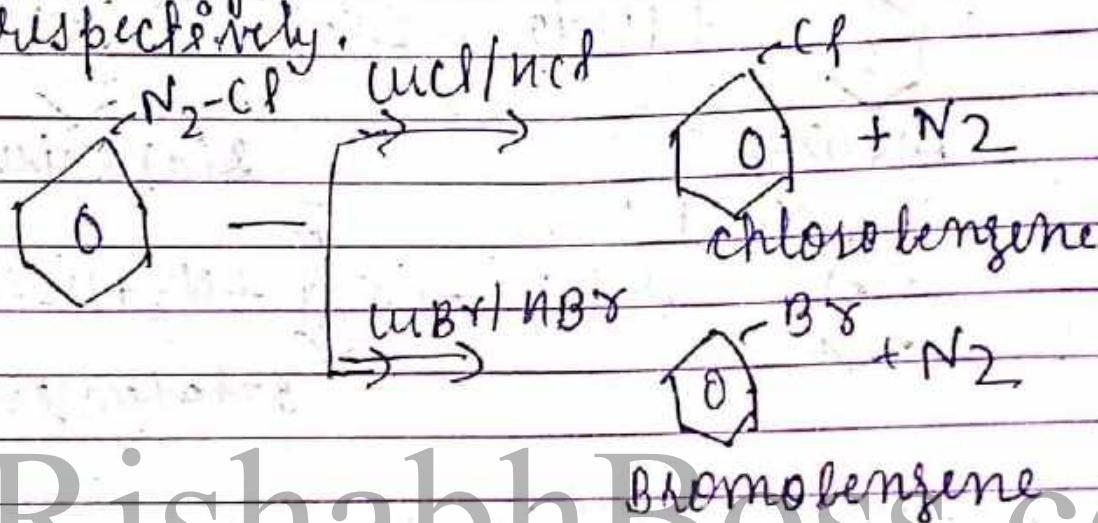 respectively.
N2-Cl CuCl/HCl Cl
+ N2
chlorobenzene
CuBr/HBr Br
+ N2
Bromobenzene
RishabhBoss.co